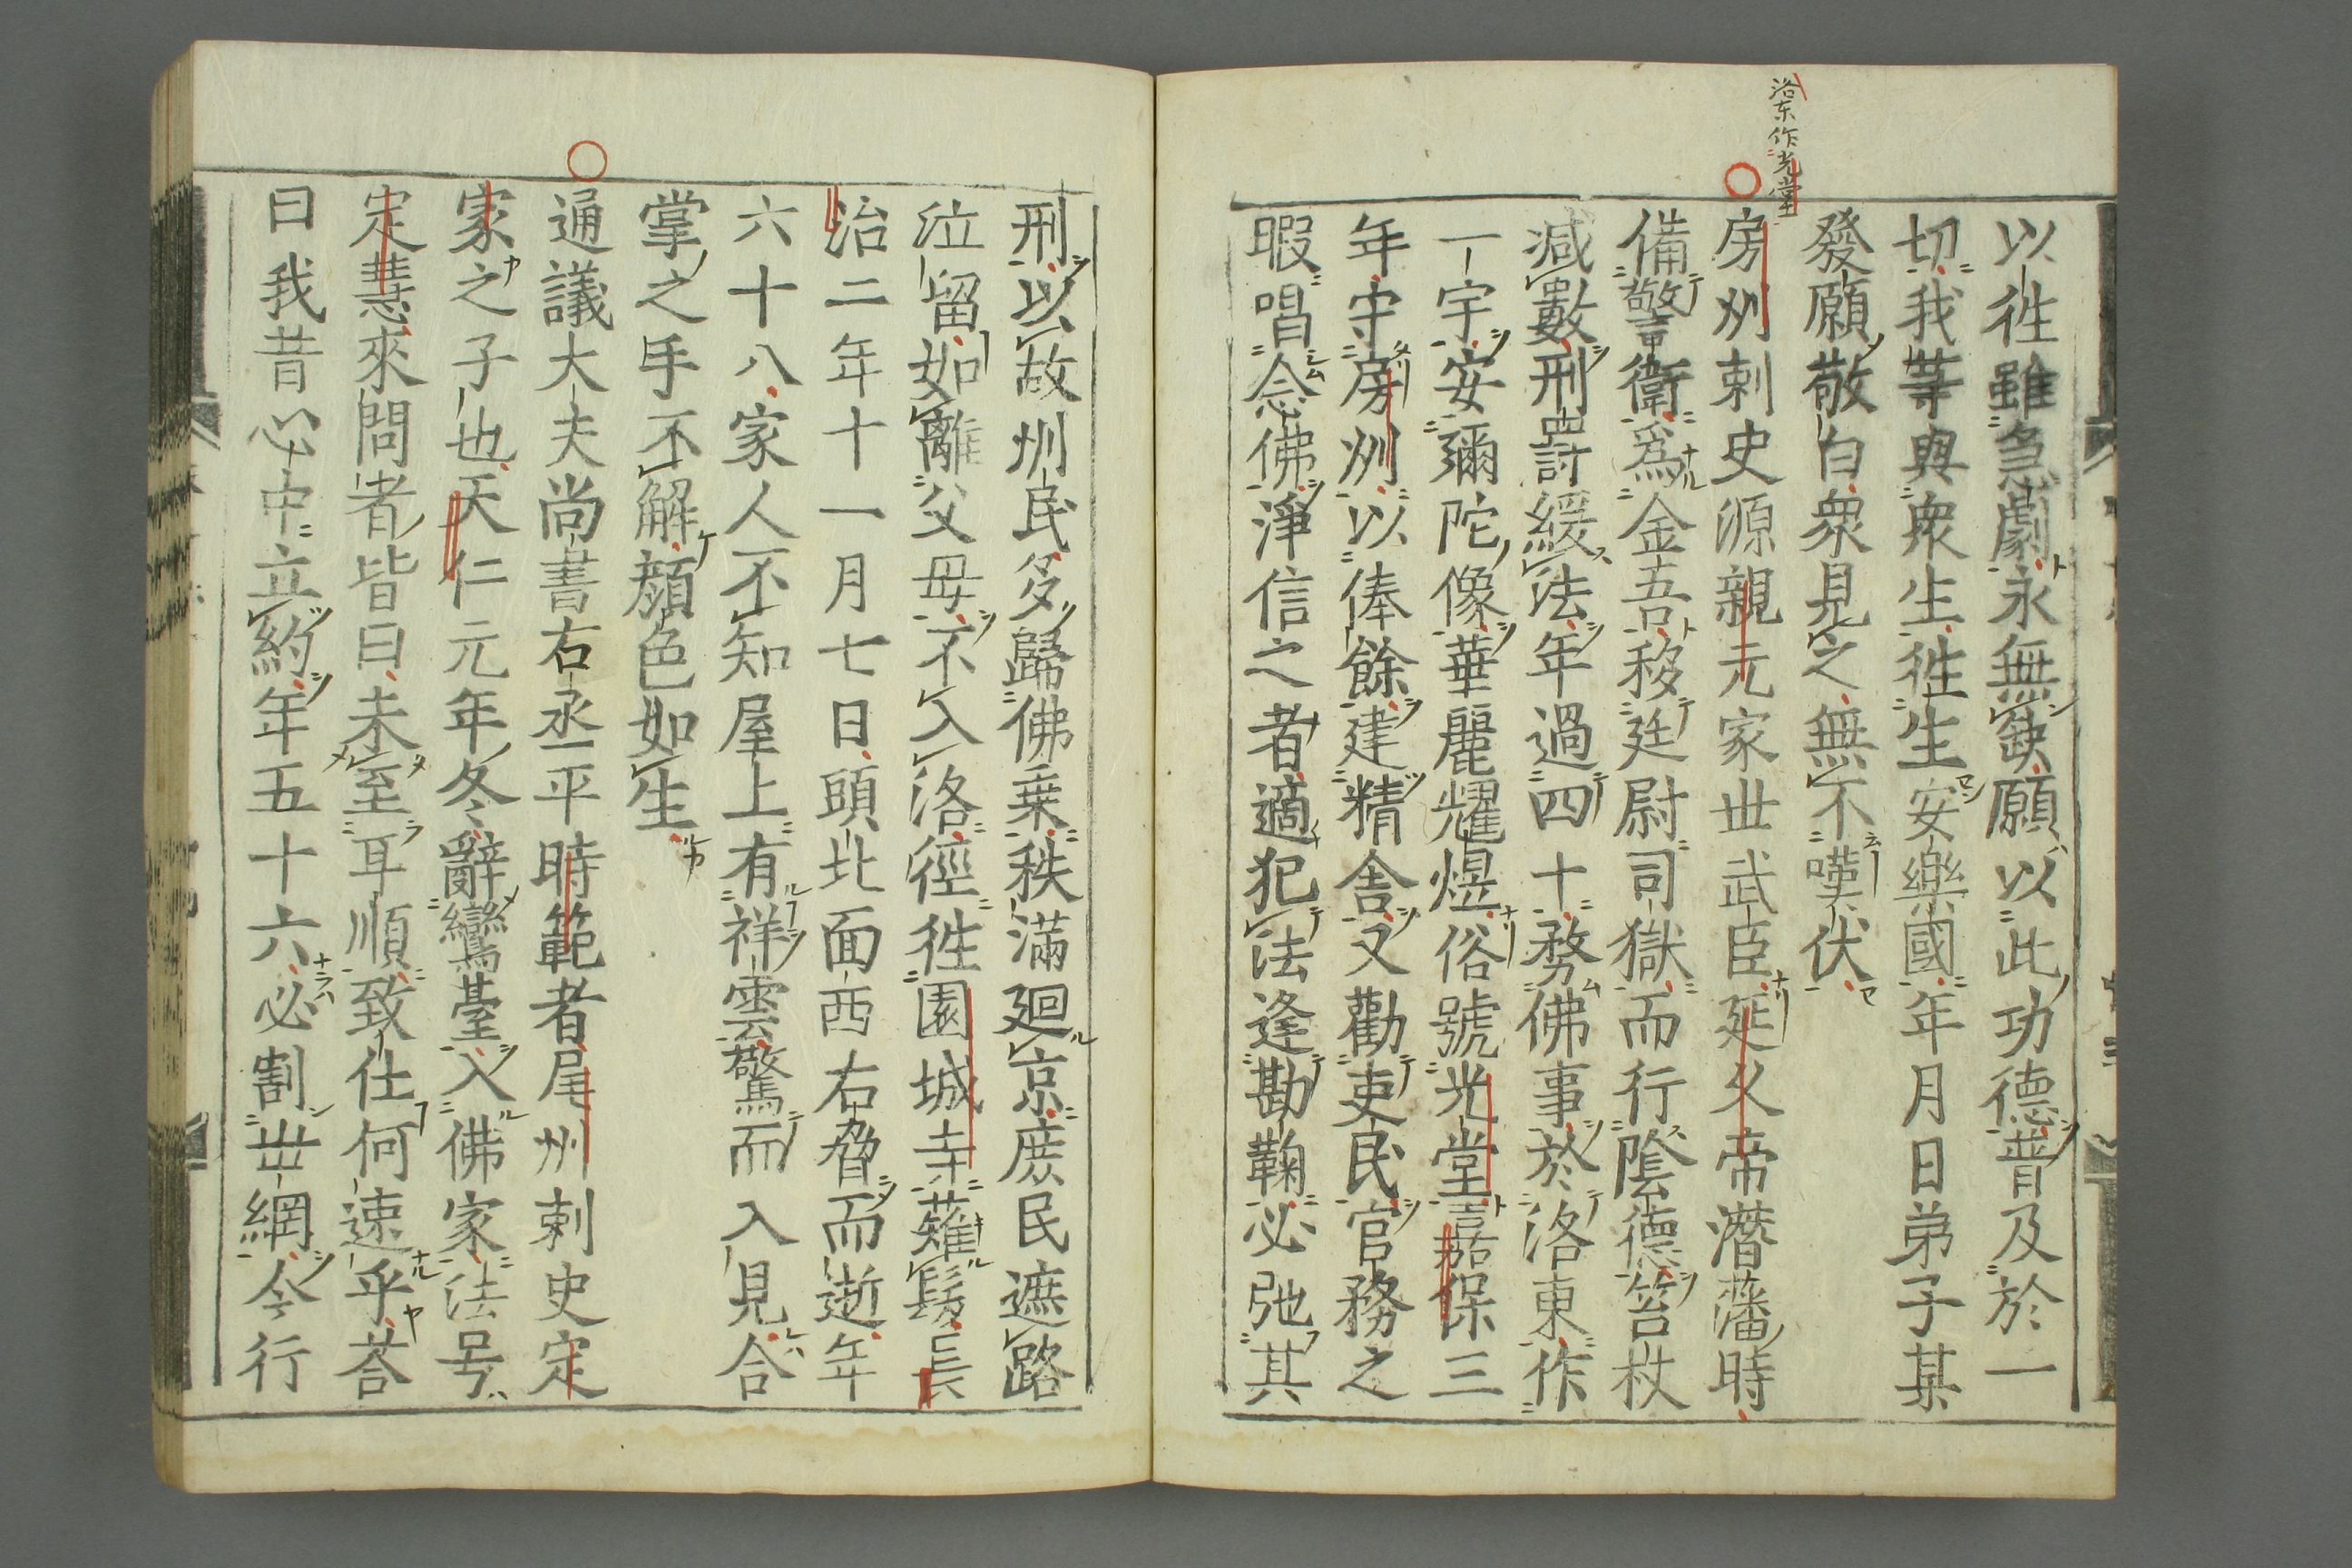 洛東作光堂
以往雖急劇永無缺願以此功德普及於一
切我等與衆生往生安樂國年月日弟子某
發願敬白衆見之無不嘆伏
房州刺史源親元家世武臣延久帝潛藩時
備警衛爲金吾移廷尉司獄而行陰德笞杖
减數刑罸緩法年過四十務佛事於洛東作
一宇安彌陀像華麗耀煜俗號光堂嘉保三
年守房州以俸餘建精舍又勸吏民官務之
暇唱念佛淨信之者適犯法逢勘鞠必弛其
刑以故州民多歸佛乗秩滿廻京庶民遮路
泣留如離父母不入洛徑往園城寺薙髮長
治二年十一月七日頭北面西右脅而逝年
六十八家人不知屋上有祥雲驚而入見合
掌之手不解顔色如生
通議大夫尚書右丞平時範者尾州刺史定
家之子也天仁元年冬辭鸞臺入佛家法号
定慧來問者皆曰未至耳順致仕何速乎荅
曰我昔心中立約年五十六必割世網今行